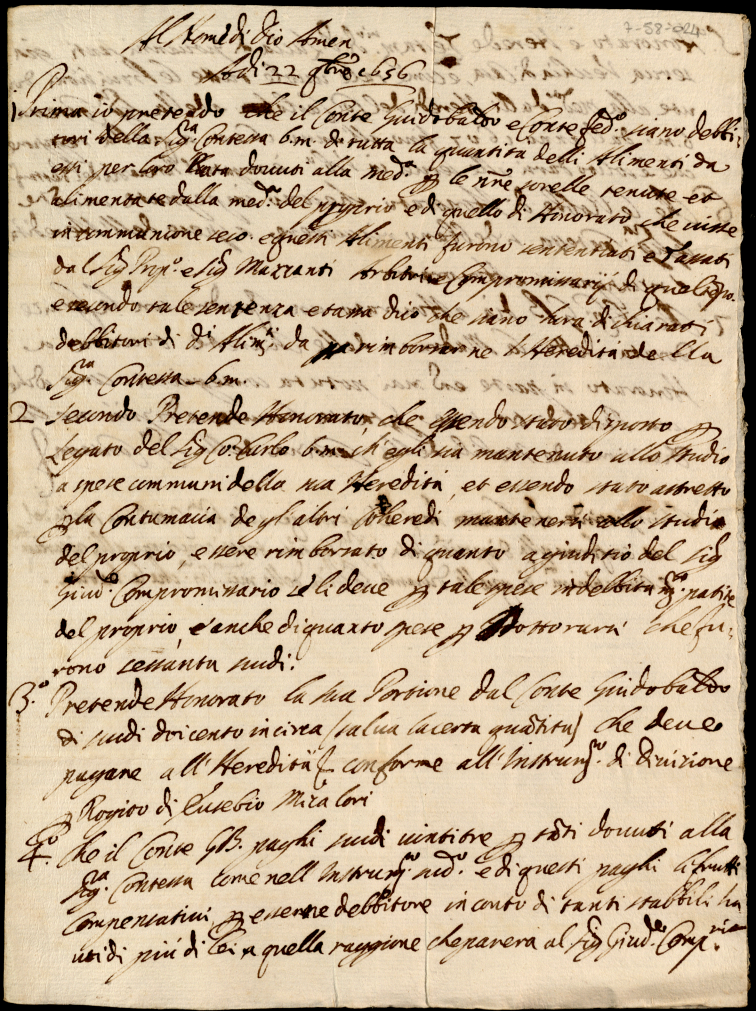 7-58-1024
Al Nome di Dio Amen
Adi 22 9bre 1656
1 Prima io pretendo che il Conte Guidobaldo e Conte fed.o siano debbi-
tori della Sig.ra Contessa b.m. di tutta la quantità delli Alimenti da
essi per loro Rata dovuti alla med.a ꝑ le nre sorelle tenute et
alimentate dalla med.a del proprio e di quello di Honorato che visse
in communione seco. e questi Alimenti furono sententiati e tassati
dal Sig Prp.o e Sig Mazzanti Arbitri e Compromissarij di quel tẽpo.
e secondo tale sentenza e tassa dico che siano hura dichiarati
debbitori di d.i Alim.ti da rimborsarne l'Heredità della
Sig.ra Contessa b.m.
2 Secondo Pretende Honorato, che essendo stato disposto ꝑ
Legato del Sig Co: Carlo b.m. ch'egli sia mantenuto allo studio
a spese communi della sua Heredità, et essendo stato astretto
ꝑ la Contumacia degl'altri Coheredi mantenersi allo studio
del proprio, essere rimborsato di quanto a giuditio del Sig
Giud.e Compromissario se li deve ꝑ tale spese indebbitam.te patite
del proprio, e anche di quanto spese ꝑ Dottorarsi che fu-
rono sessanta scudi.
3.o Pretende Honorato la sua Portione dal Conte Guidobaldo
di scudi doicento in circa (salva la certa quãtità) che deve
pagare all'Heredità conforme all'Instrum.to di Divisione
ꝑ Rogito di Eusebio Miralori
4.o Che il Conte GB. paghi scudi vintitre ꝑ tãti dovuti alla
Sig.ra Contessa come nell'Instrum.to sud.o e di questi paghi li frutti
compensativi, ꝑ esserne debbitore in conto di tanti stabbili ha
uti di più di lei a quella raggione che parerà al Sig Giud.e Comp.rio